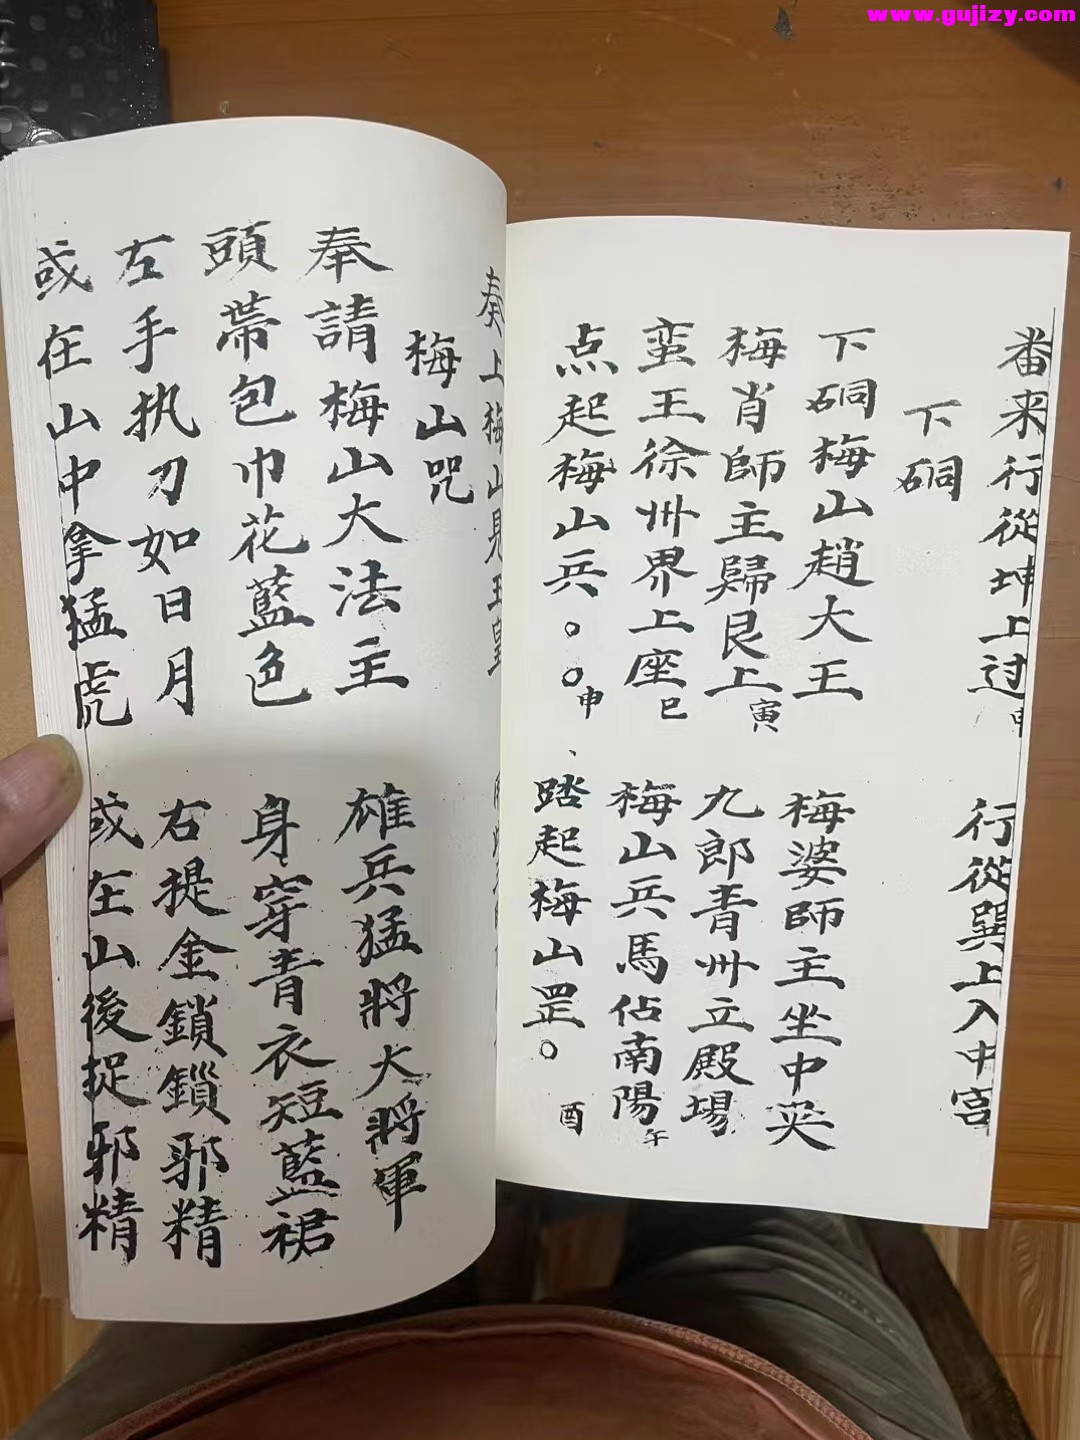 www.gujizy.com
番来行從坤上过申 行從巽上入中宫
下硐
下硐梅山趙大王 梅婆師主坐中英
梅肖師主歸艮上寅 九郎青州立殿場
蛮王徐州界上座巳 梅山兵馬佔南陽午
点起梅山兵。。申、踏起梅山罡。酉
奏上梅山見玉皇
梅山咒
奉請梅山大法主 雄兵猛將大將軍
頭帶包巾花藍色 身穿青衣短藍裙
左手执刀如日月 右提金鎖鎖邪精
或在山中拿猛虎 或在山後捉邪精